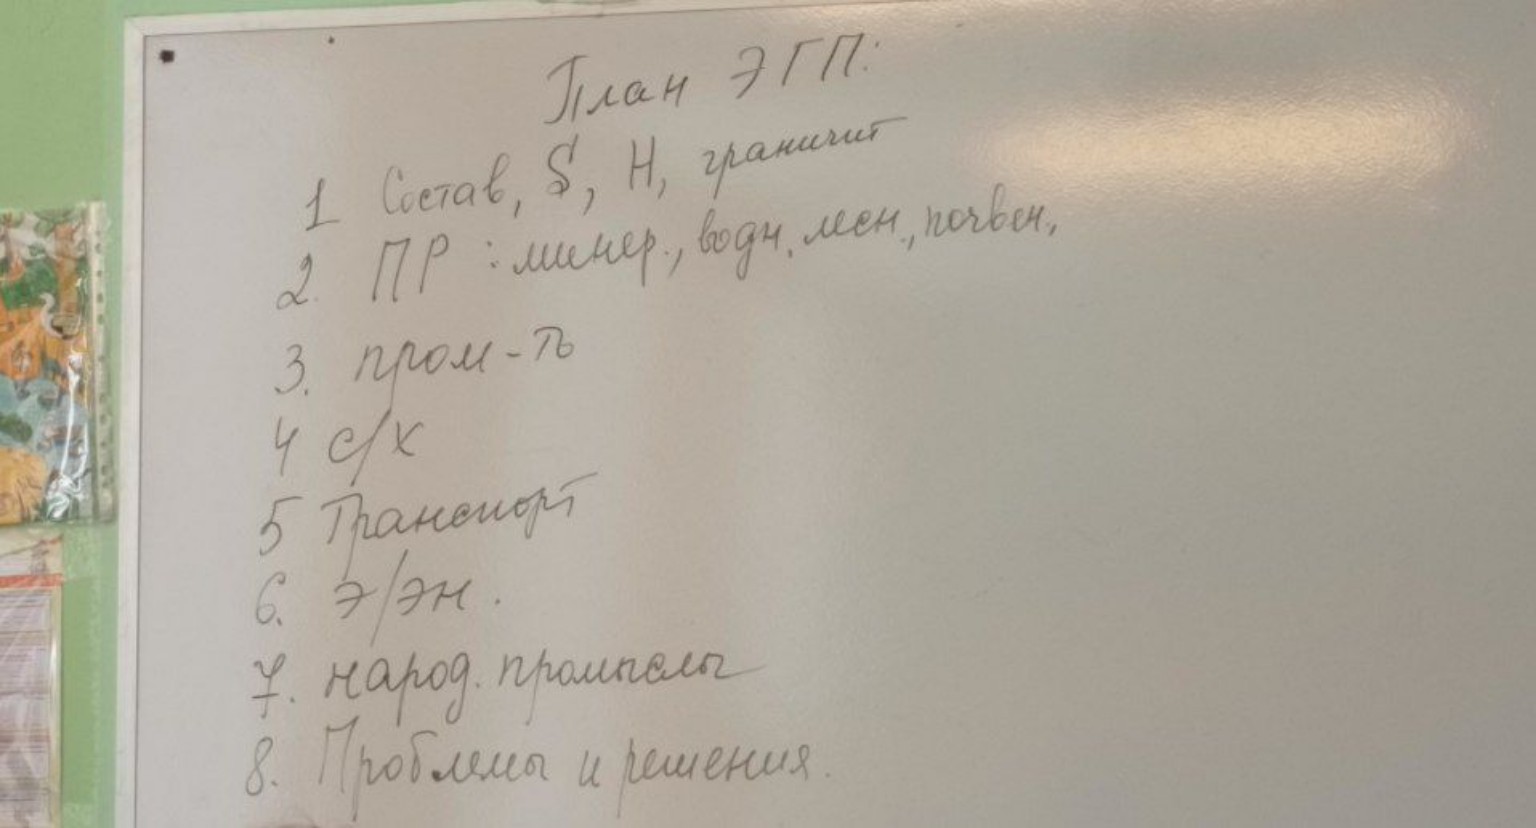 План ЭГП:
1 Состав, S, Н, граничит
2. ПР : минер., водн. лесн., почвен.,
3. пром-ть
4 с/х
5 Транспорт
6. э/эн.
7. народ. промыслы
8. Проблемы и решения.